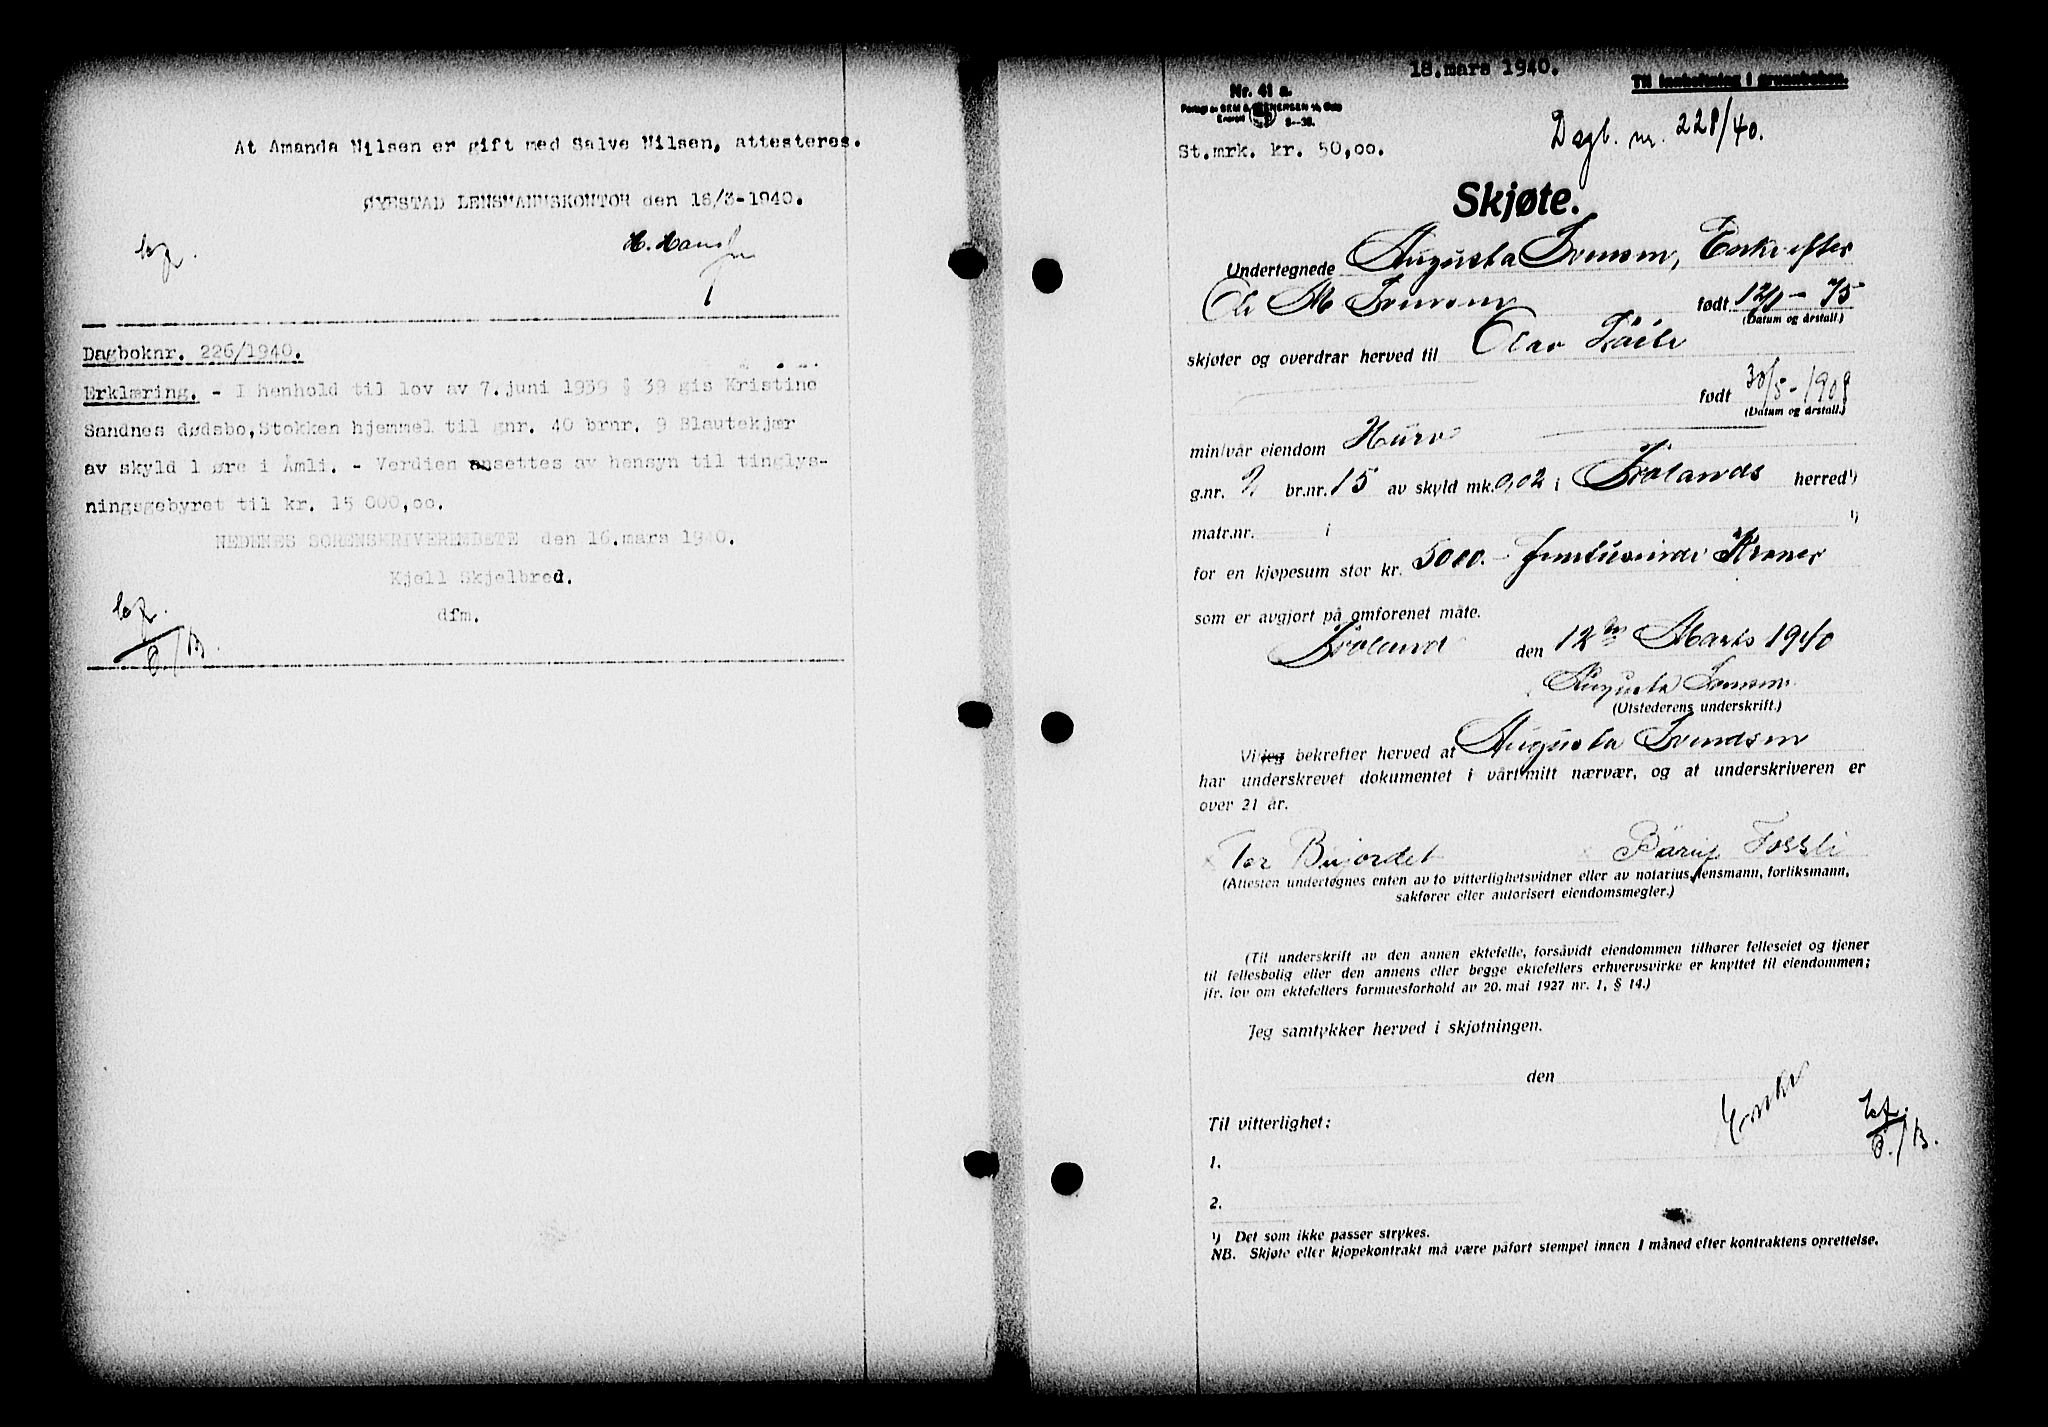 At Amanda Nilsen er gift med Salve Nilsen, attesteres.
ØYESTAD LENSMANNSKONTOR den 16/3-1940.
H. Hans
Dagboknr. 226/1940.
Erklæring. - I henhold til lov av 7. juni 1939 § 39 gis Kristine
Sandnes dødsbo, Stokken hjemmel til gnr. 40 brnr. 9 Blautekjær
av skyld 1 øre i Åmli. - Verdien ansettes av hensyn til tinglys-
ningsgebyret til kr. 15 000,oo.
NEDENES SORENSKRIVEREMBETE den 16.mars 1940.
Kjell Skjelbred.
dfm.
18.mars 1940.
Til innheftning i grunnboken.
Nr. 41 a.
Dagb. nr. 228/40.
St.mrk. kr. 50,oo.
Skjøte.
Undertegnede Augusta Svensen, Enke efter
Ole M Svensen født 12/1 - 75
(Datum og årstall.)
skjøter og overdrar herved til Olav
født 30/5 - 1908
(Datum og årstall.)
min/vår eiendom Hurv
g.nr. 2 br.nr. 15 av skyld mk. 0,02 i Frolands herred¹)
matr.nr. i ¹)
for en kjøpesum stor kr. 5000. - femtusinde Kroner
som er avgjort på omforenet måte.
Froland den 12 te Marts 1940
Augusta Svensen
(Utstederens underskrift.)
Vi/jeg bekrefter herved at Augusta Svendsen
har underskrevet dokumentet i vårt/mitt nærvær, og at underskriveren er
over 21 år.
Tor Bujordet Børuf Fossli
(Attesten undertegnes enten av to vitterlighetsvidner eller av notarius, lensmann, forliksmann,
sakfører eller autorisert eiendomsmegler.)
(Til underskrift av den annen ektefelle, forsåvidt eiendommen tilhører felleseiet og tjener
til fellesbolig eller den annens eller begge ektefellers erhvervsvirke er knyttet til eiendommen;
jfr. lov om ektefellers formuesforhold av 20. mai 1927 nr. 1, § 14.)
Jeg samtykker herved i skjøtningen.
den
Enke
Til vitterlighet:
1.
2.
¹) Det som ikke passer strykes.
NB. Skjøte eller kjøpekontrakt må være påført stempel innen 1 måned efter kontraktens oprettelse.